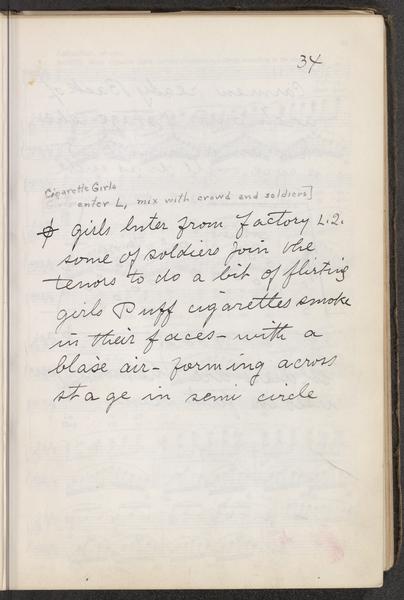 34
Cigarette Girls
enter L, mix with crowd and soldiers]
girls Enter from factory L.2.
some of soldiers Join the
tenors to do a bit of flirting
girls Puff cigarettes smoke
in their faces - with a
blasé air - forming across
stage in semi circle